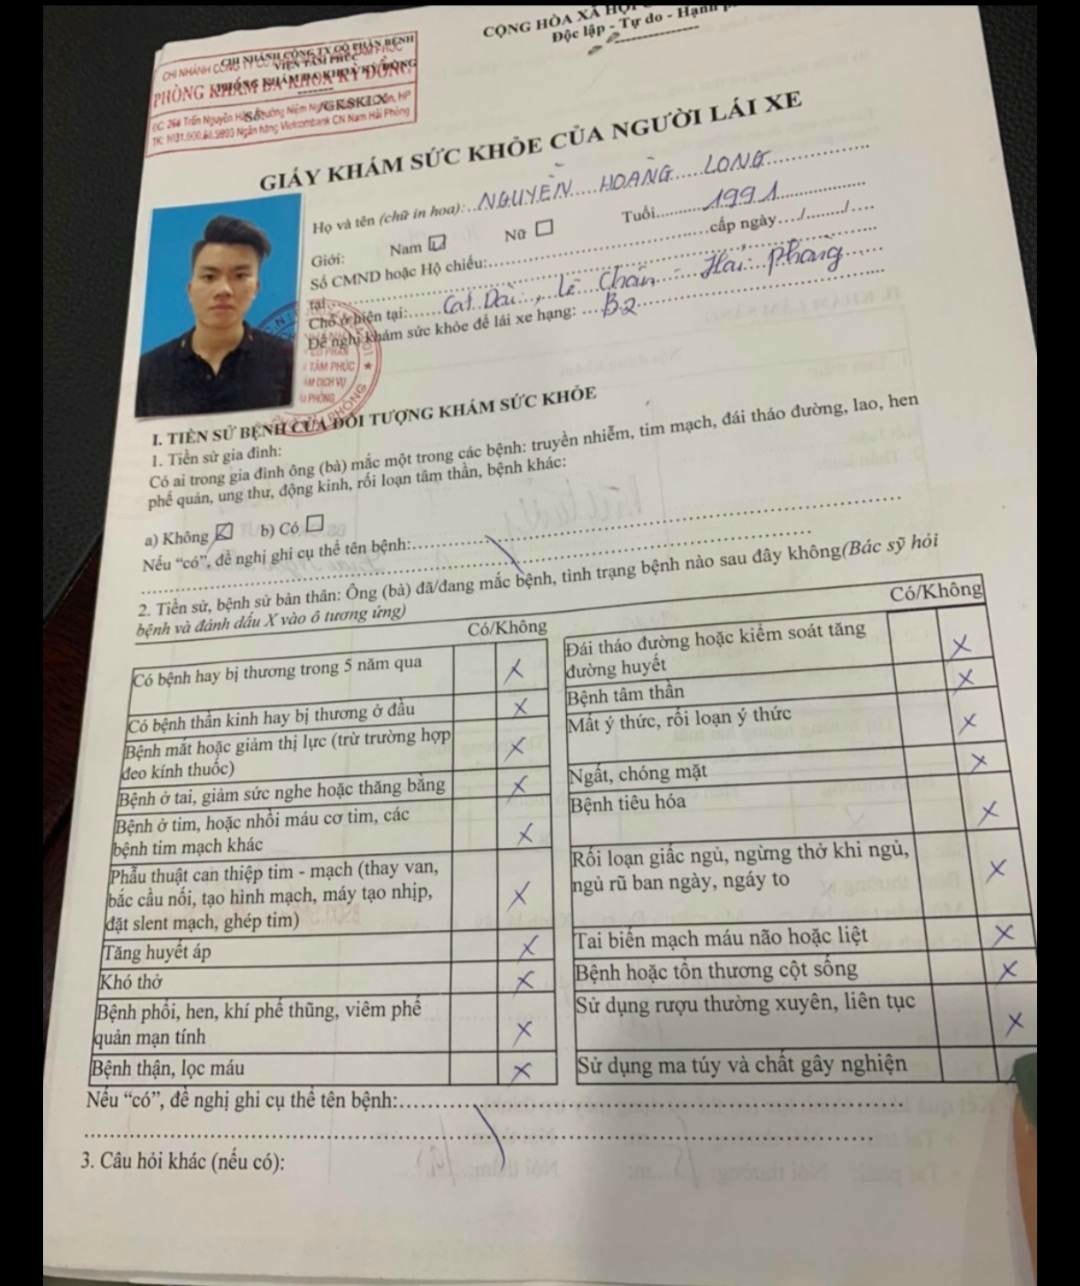 CỘNG HÒA XÃ HỘI
Độc lập - Tự do - Hạnh
CHI NHÁNH CÔNG TY CỔ PHẦN BỆNH
VIỆN TÂM PHÚC
PHÒNG KHÁM ĐA KHOA KỲ ĐỒNG
Số /GKSKLX
ĐC: 264 Trần Nguyên Hãn, Phường Niệm Nghĩa
Ngân hàng Vietcombank CN Nam Hải Phòng
GIẤY KHÁM SỨC KHỎE CỦA NGƯỜI LÁI XE
Họ và tên (chữ in hoa): NGUYỄN HOÀNG LONG
Giới: Nam ☑ Nữ ☐ Tuổi 1991
Số CMND hoặc Hộ chiếu: cấp ngày / /
tại
Chỗ ở hiện tại: Cát Dài, Lê Chân - Hải Phòng
Đề nghị khám sức khỏe để lái xe hạng: B2
TÂM PHÚC
I. TIỀN SỬ BỆNH CỦA ĐỐI TƯỢNG KHÁM SỨC KHỎE
1. Tiền sử gia đình:
Có ai trong gia đình ông (bà) mắc một trong các bệnh: truyền nhiễm, tim mạch, đái tháo đường, lao, hen
phế quản, ung thư, động kinh, rối loạn tâm thần, bệnh khác:
a) Không ☑ b) Có ☐
Nếu “có”, đề nghị ghi cụ thể tên bệnh:
2. Tiền sử, bệnh sử bản thân: Ông (bà) đã/đang mắc bệnh, tình trạng bệnh nào sau đây không(Bác sỹ hỏi
bệnh và đánh dấu X vào ô tương ứng)
Có/Không
Có bệnh hay bị thương trong 5 năm qua X
Có bệnh thần kinh hay bị thương ở đầu X
Bệnh mắt hoặc giảm thị lực (trừ trường hợp
đeo kính thuốc) X
Bệnh ở tai, giảm sức nghe hoặc thăng bằng X
Bệnh ở tim, hoặc nhồi máu cơ tim, các
bệnh tim mạch khác X
Phẫu thuật can thiệp tim - mạch (thay van,
bắc cầu nối, tạo hình mạch, máy tạo nhịp,
đặt slent mạch, ghép tim) X
Tăng huyết áp X
Khó thở X
Bệnh phổi, hen, khí phế thũng, viêm phế
quản mạn tính X
Bệnh thận, lọc máu X
Có/Không
Đái tháo đường hoặc kiểm soát tăng
đường huyết X
Bệnh tâm thần X
Mất ý thức, rối loạn ý thức X
Ngất, chóng mặt X
Bệnh tiêu hóa X
Rối loạn giấc ngủ, ngừng thở khi ngủ,
ngủ rũ ban ngày, ngáy to X
Tai biến mạch máu não hoặc liệt X
Bệnh hoặc tổn thương cột sống X
Sử dụng rượu thường xuyên, liên tục X
Sử dụng ma túy và chất gây nghiện
Nếu “có”, đề nghị ghi cụ thể tên bệnh:
3. Câu hỏi khác (nếu có):